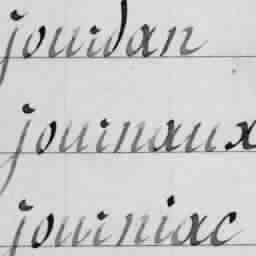 jourdan
journaux
journiac